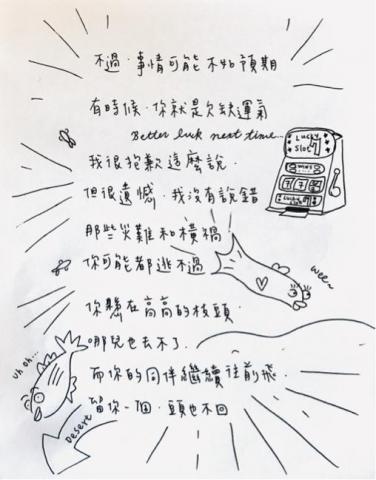 不過,事情可能不如預期
有時候,你就是欠缺運氣
Better luck next time...
Lucky
Slot
我很抱歉這麼說,
但很遺憾,我沒有說錯
那些災難和橫禍
你可能都逃不過
wee~
你懸在高高的枝頭,
哪兒也去不了.
uh oh...
而你的同伴繼續往前飛.
Desert
留你一個,頭也不回